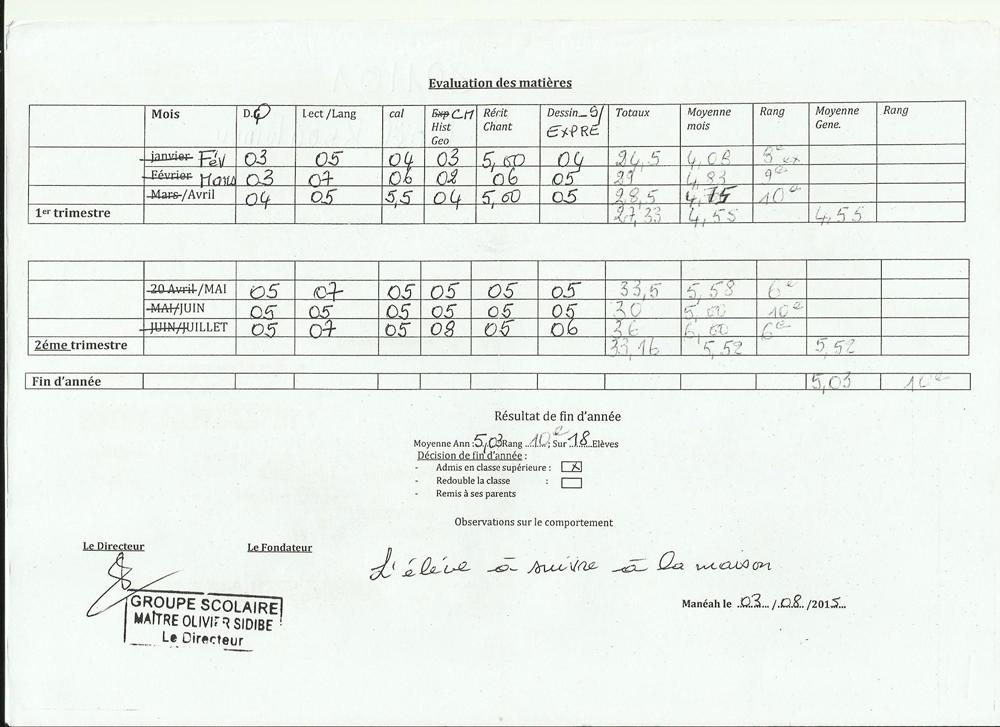 Evaluation des matières
Mois D.Q Lect /Lang cal Exp CM Hist Geo Récit Chant Dessin_S/ EXPRE Totaux Moyenne mois Rang Moyenne Gene. Rang
janvier Fév 03 05 04 03 5,00 04 24,5 4,08 8e ex
Février Mars 03 07 06 02 06 05 29 4,83 9e
Mars /Avril 04 05 5,5 04 5,00 05 28,5 4,75 10e
1er trimestre 27,33 4,55 4,55
20 Avril /MAI 05 07 05 05 05 05 33,5 5,58 6e
MAI/JUIN 05 05 05 05 05 05 30 5,00 10e
JUIN/JUILLET 05 07 05 08 05 06 36 6,00 6e
2éme trimestre 33,16 5,52 5,52
Fin d'année 5,03 10e
Résultat de fin d'année
Moyenne Ann : 5,03 Rang 10e ; Sur 18 Elèves
Décision de fin d'année :
- Admis en classe supérieure : X
- Redouble la classe :
- Remis à ses parents
Observations sur le comportement
Le Directeur Le Fondateur
L'élève à suivre à la maison
Manéah le 03 / 08 /2015
GROUPE SCOLAIRE
MAÎTRE OLIVIER SIDIBE
Le Directeur